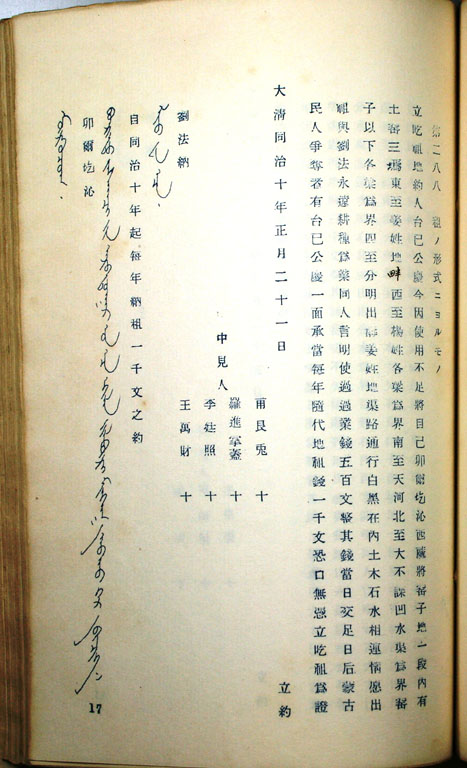 第二八八 租ノ形式ニヨルモノ
立吃租地約人台巳公慶今因使用不足將自己卯爾圪沁西陲將窰子地一段內有
土窰三塢東至姜姓地畔西至楊姓各渠爲界南至天河北至大不課凹水渠爲界窰
子以下各渠爲界四至分明出姜姓地渠路通行白黑在內土木石水相連情愿出
租與劉法永遠耕種爲業同人言明使過過業錢五百文整其錢當日交足日后蒙古
民人爭奪者有台巳公慶一面承當每年隨代地租錢一千文恐口無憑立吃租爲證
立約
大清同治十年正月二十一日
甫艮兎 十
羅進 十
中見人 李廷照 十
王萬財 十
劉法納
自同治十年起每年納租一千文之約
卯爾圪沁
17